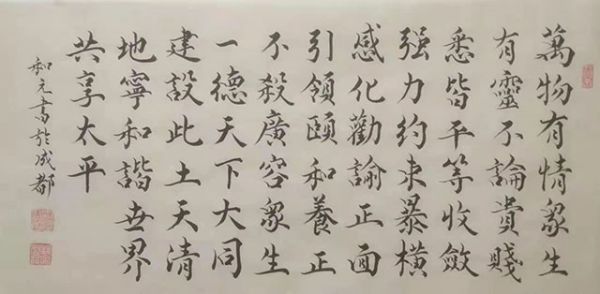 萬物有情衆生
有靈不論貴賤
悉皆平等收斂
强力約束暴橫
感化勸諭正面
引領頤和養正
不殺廣容衆生
一德天下大同
建設此土天清
地寧和諧世界
共享太平
和元書於成都